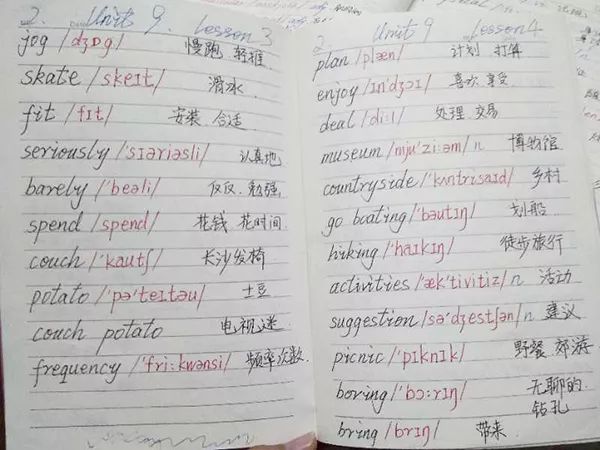 2. Unit 9. Lesson 3
jog /dʒɒg/ 慢跑 轻推
skate /skeɪt/ 滑冰
fit /fɪt/ 安装 合适
seriously /'sɪəriəsli/ 认真地
barely /'beəli/ 仅仅. 勉强
spend /spend/ 花钱 花时间
couch /'kautʃ/ 长沙发椅
potato /'pə'teɪtəu/ 土豆
couch potato 电视迷
frequency /'fri:kwənsi/ 频率 次数
2. Unit 9 Lesson 4
plan /plæn/ 计划 打算
enjoy /ɪn'dʒɔɪ/ 喜欢 享受
deal /di:l/ 处理 交易
museum /mju'zi:əm/ n 博物馆
countryside /'kʌntrɪsaɪd/ 乡村
go boating /'bəutɪŋ/ 划船
hiking /'haɪkɪŋ/ 徒步旅行
activities /æk'tivitiz/ n 活动
suggestion /sə'dʒestʃən/ n 建议
picnic /'pɪknɪk/ 野餐 郊游
boring /'bɔ:rɪŋ/ 无聊的
钻孔
bring /brɪŋ/ 带来